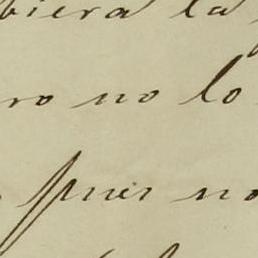 biera la
ro no lo
pues no